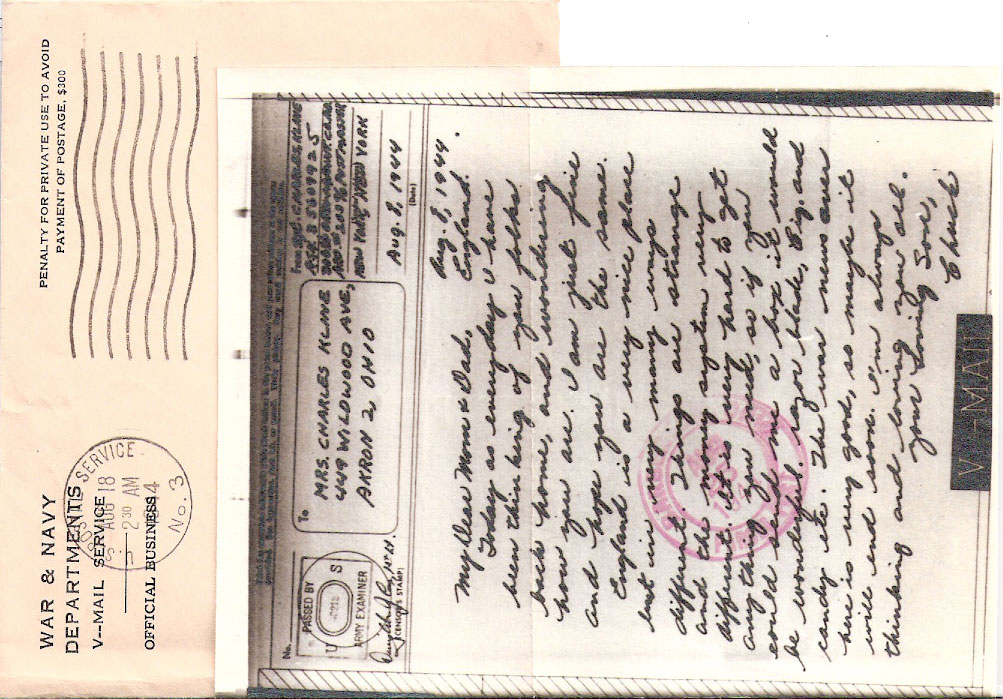 WAR & NAVY
DEPARTMENTS
V--MAIL SERVICE
OFFICIAL BUSINESS
PENALTY FOR PRIVATE USE TO AVOID
PAYMENT OF POSTAGE, $300
SERVICE
AUG 18
2 30 AM
No. 3
No.
PASSED BY
U S
ARMY EXAMINER
(CENSOR'S STAMP)
To
MRS. CHARLES KLINE
449 WILDWOOD AVE,
AKRON 2, OHIO
From
CHARLES KLINE
NEW YORK
AUG. 8, 1944
(Date)
Aug. 8, 1944.
England.
My Dear Mom & Dad,
Today as everyday I have
been thinking of you folks
back home, and wondering
how you are. I am just fine
and hope you are the same.
England is a very nice place
but in very many ways
different. Things are strange
and the money system very
different. It is very hard to get
anything you need, so if you
could send me a box it would
be wonderful. Razor blade, Cig. and
candy etc. The war news over
here is very good, so maybe it
will end soon. I'm always
thinking and loving you all.
Your Loving Son,
Chuck
V-MAIL